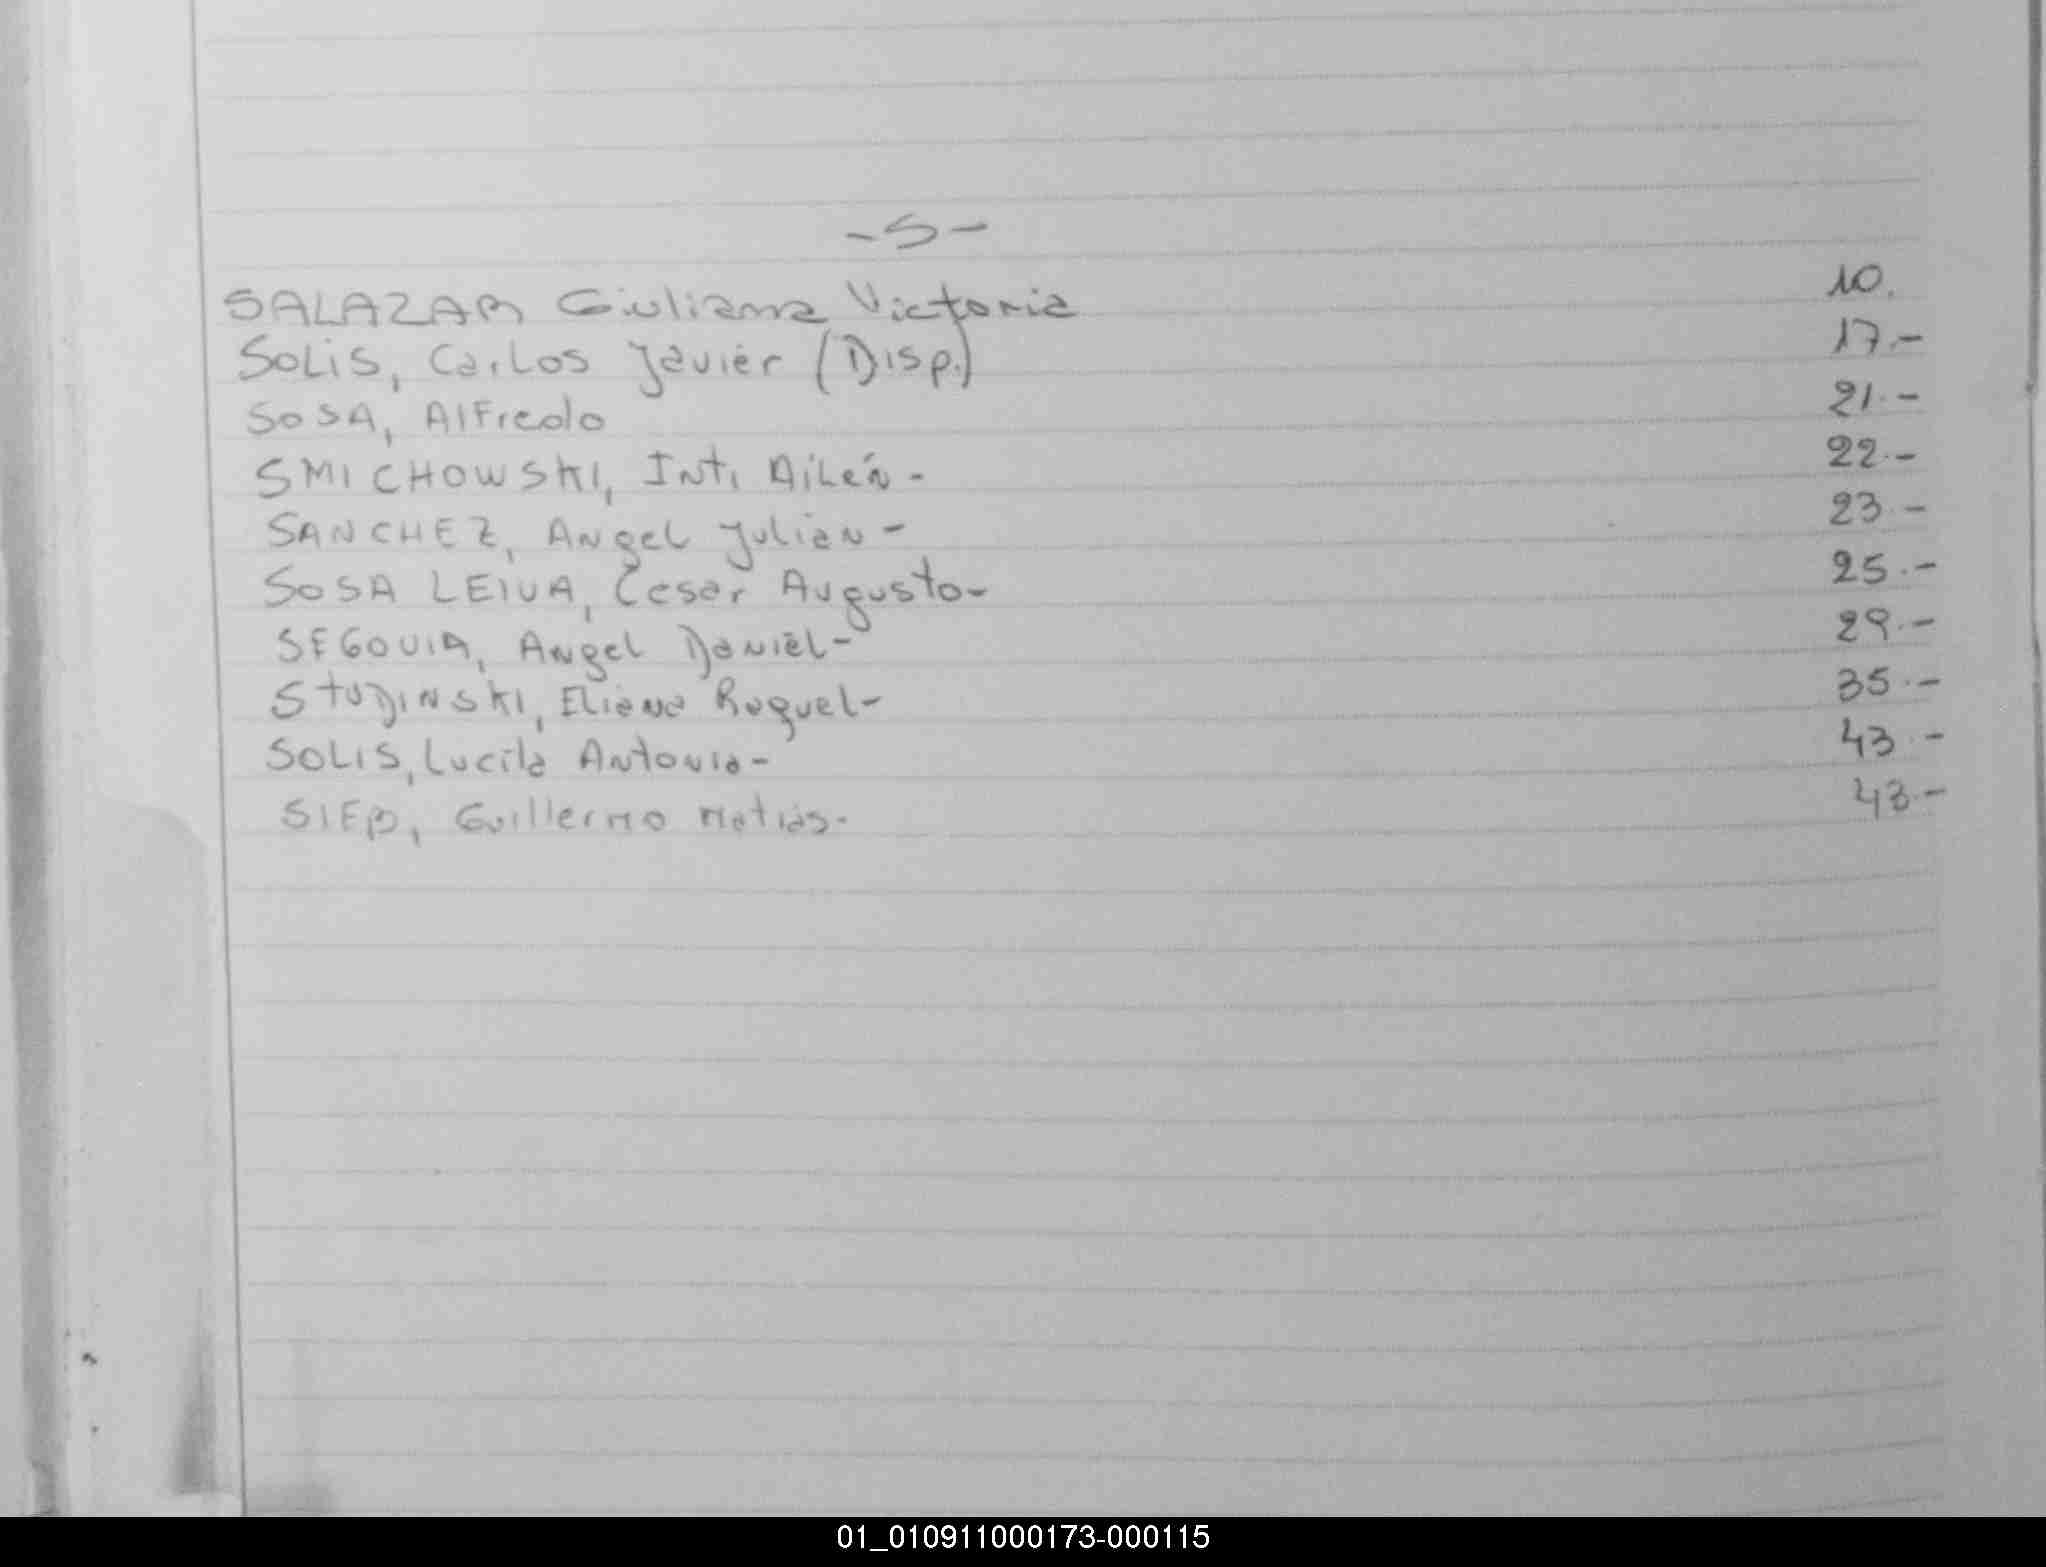 -S-
SALAZAR Giuliana Victoria 10.
SOLIS, Carlos Javier (Disp.) 17.-
SOSA, Alfredo 21.-
SMICHOWSKI, Inti Ailén- 22.-
SANCHEZ, Angel Julian- 23.-
SOSA LEIVA, Cesar Augusto- 25.-
SEGOVIA, Angel Daniel- 29.-
STUDINSKI, Eliana Raquel- 35.-
SOLIS, Lucila Antonia- 43.-
SIER, Guillermo Matias.- 43.-
01_010911000173-000115